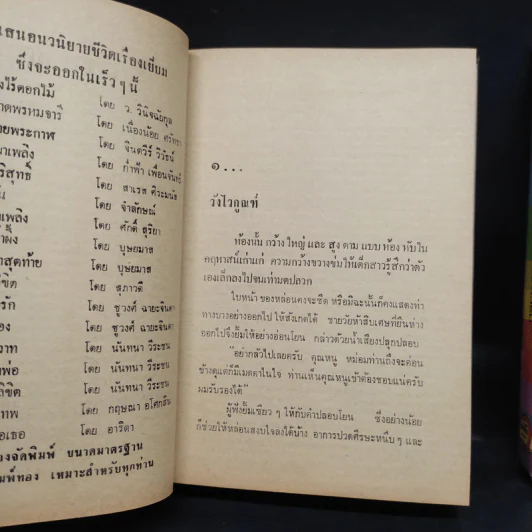 เสนอนวนิยายชีวิตเรื่องเยี่ยม
ซึ่งจะออกในเร็วๆนี้
โดย ว. วินิจฉัยกุล
โดย เนื่องน้อย ศรัทธา
โดย จินตวีร์ วิวัธน์
โดย กำฟ้า เพื่อนจันทร์
โดย สาเรส ศิระมนัส
โดย จำลักษณ์
โดย ศักดิ์ สุริยา
โดย บุษยมาส
โดย บุษยมาส
โดย สุภาวดี
โดย ชูวงศ์ ฉายะจินดา
โดย ชูวงศ์ ฉายะจินดา
โดย นันทนา วีระชน
โดย นันทนา วีระชน
โดย นันทนา วีระชน
โดย กฤษณา อโศกสิน
โดย อาริตา
จัดพิมพ์ ขนาดมาตรฐาน
เหมาะสำหรับทุกท่าน
๑...
วังไวกูณฑ์
ห้องนั้น กว้าง ใหญ่ และ สูง ตาม แบบ ห้อง ทับใน
คฤหาสน์เก่าแก่ ความกว้างขวางข่มให้เด็กสาวรู้สึกว่าตัว
เองเล็กลงไปจนเท่ามดปลวก
ใบหน้า ของหล่อนคงจะซีด หรือมิฉะนั้นก็คงแสดงท่า
ทางบางอย่างออกไป ให้สังเกตได้ ชายวัยห้าสิบเศษที่ยืนห่าง
ออกไปจึงยิ้มให้อย่างอ่อนโยน กล่าวด้วยน้ำเสียงปลุกปลอบ
"อย่ากลัวไปเลยครับ คุณหนู หม่อมท่านถึงจะค่อน
ข้างดุแต่ก็มีเมตตาในใจ ท่านเห็นคุณหนูเข้าต้องชอบแน่ครับ
ผมรับรองได้"
ผู้ฟังยิ้มเซียวๆ ให้กับคำปลอบโยน ซึ่งอย่างน้อย
ก็ช่วยให้หล่อนสงบใจลงได้บ้าง อาการปวดศีรษะหนึบๆ และ